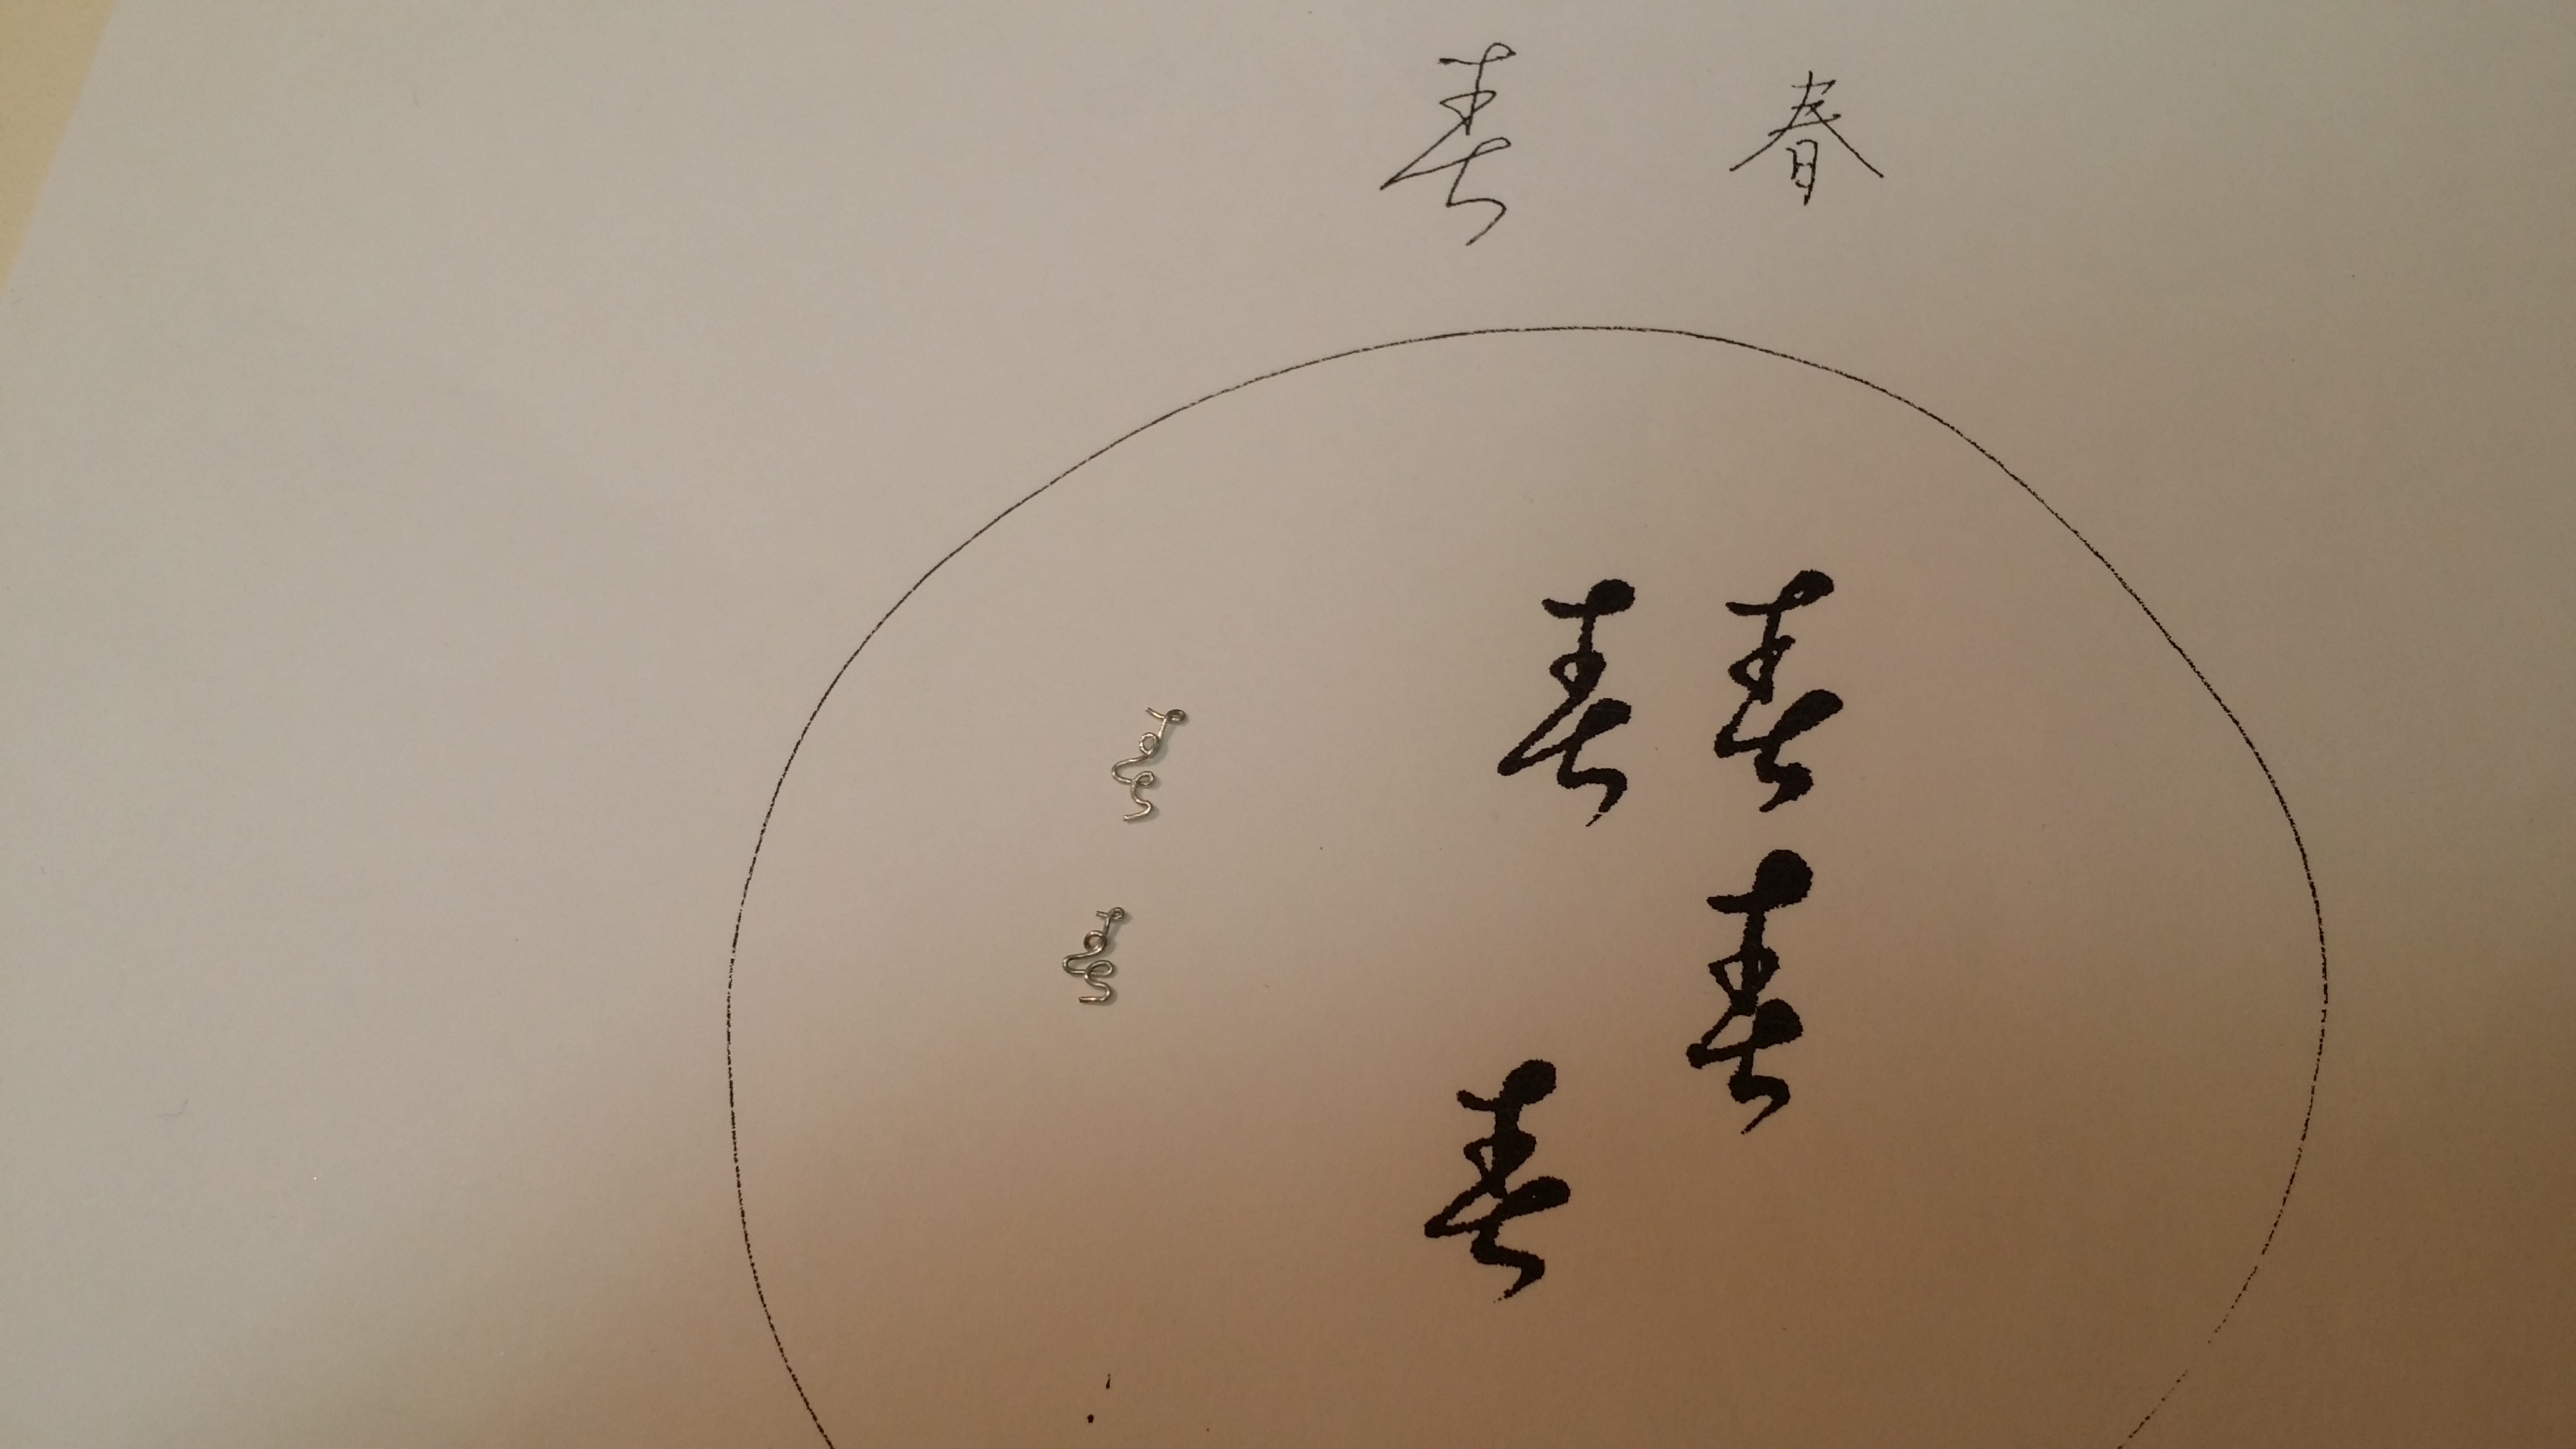 春 春
春 春
春
春